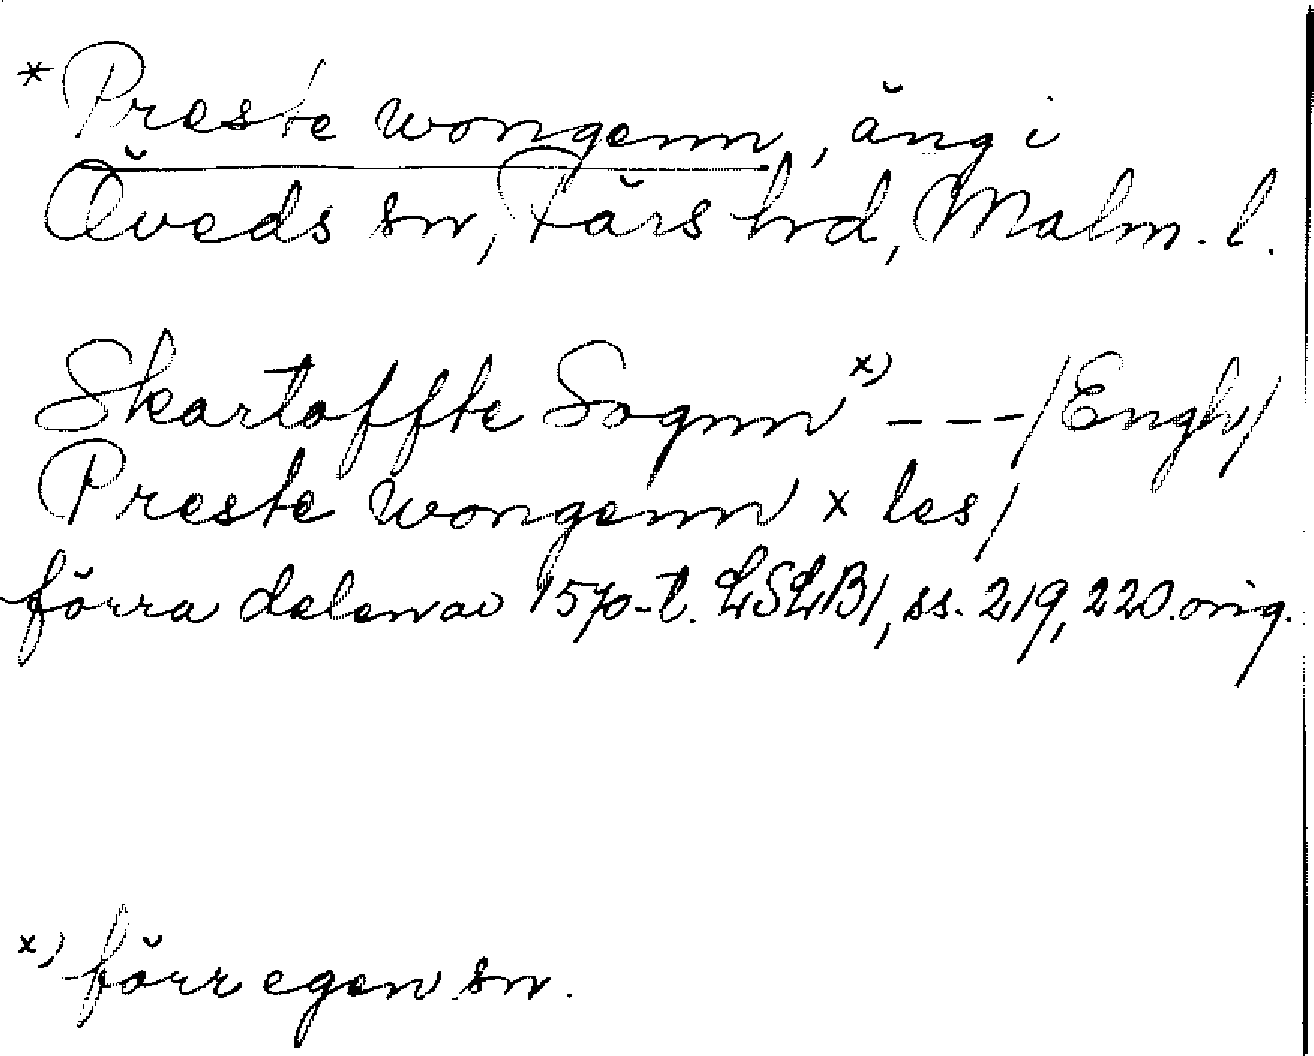 *Preste wongenn, äng i
Öveds sn, Färs hrd, Malm. l.
Skartoffte Sognn x) --- /Engh/
Preste wongenn x les/
förra delen av 1570-t. LSLB1, ss. 219, 220. orig.
x) förr egen sn.